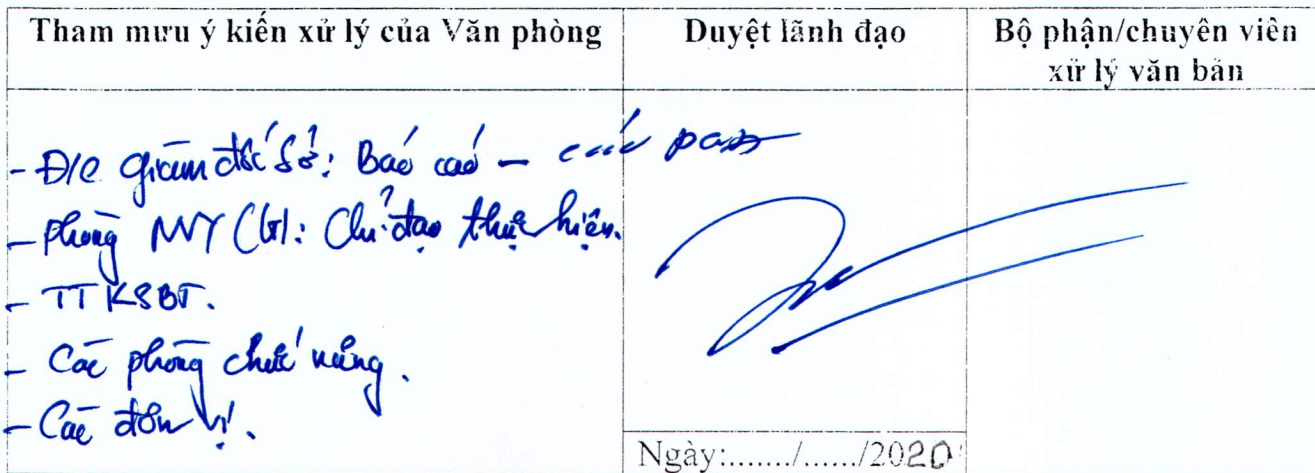 Tham mưu ý kiến xử lý của Văn phòng
Duyệt lãnh đạo
Bộ phận/chuyên viên
xử lý văn bản
- Đ/c Giám đốc Sở: Báo cáo -
- Phòng NVY : Chỉ đạo thực hiện.
- TTKSBT.
- Các phòng chức năng.
- Các đơn vị.
Ngày:......./....../2020